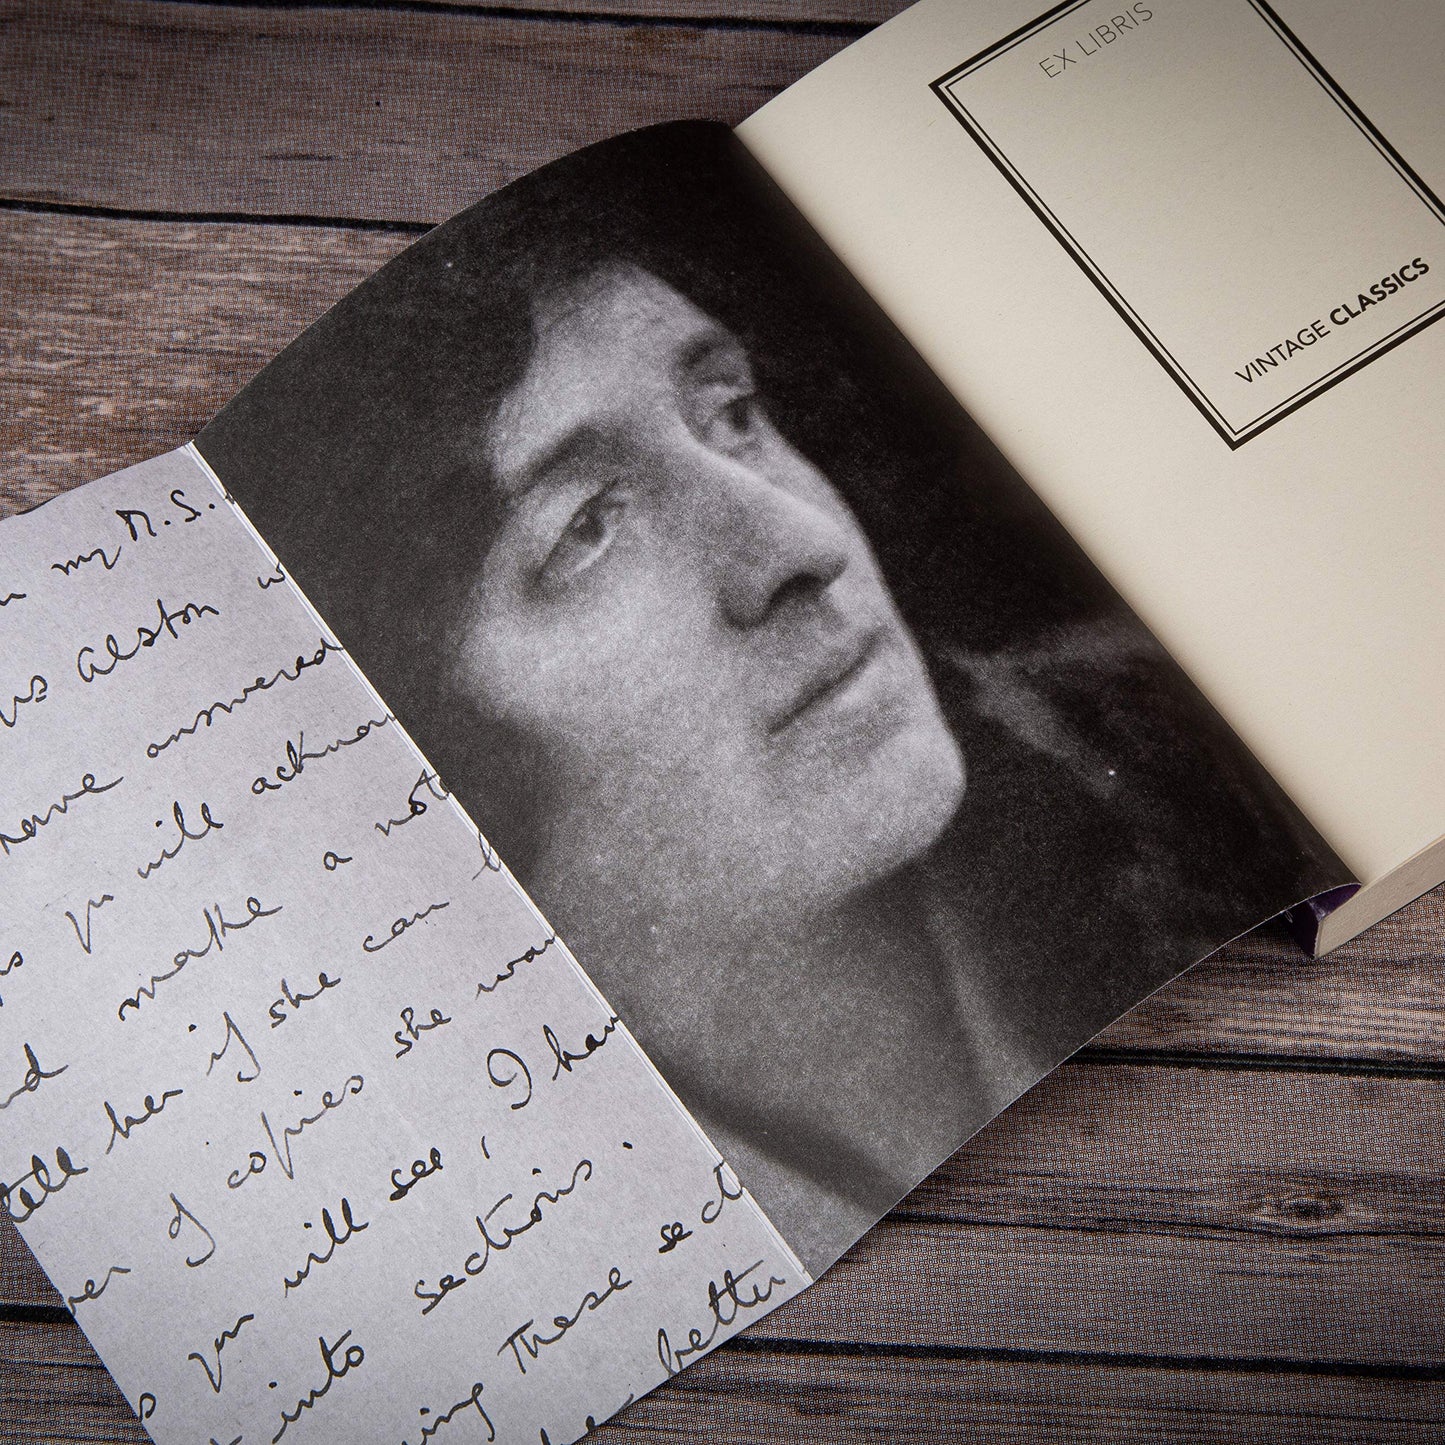 my M.S.
Alston
have answered
you will acknow
make a note
tell her if she can
I copies she wan
you will see, I hav
into sections.
these sect
better
EX LIBRIS
VINTAGE CLASSICS